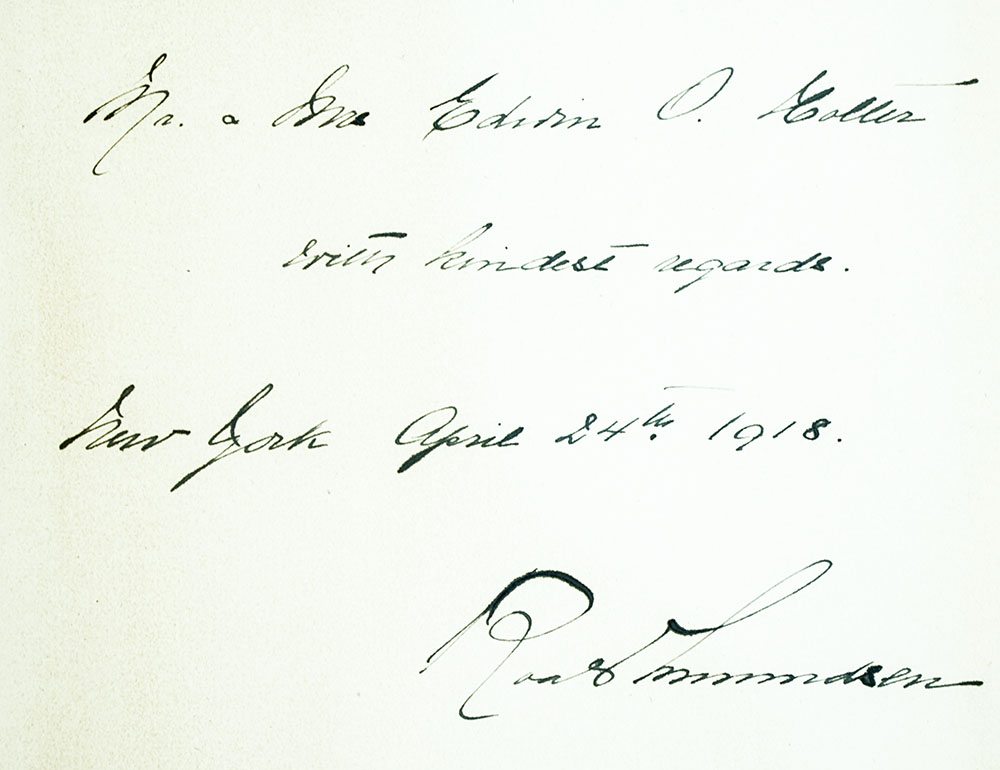 Mr. & Mrs Edwin O. Holter
with kindest regards.
New York April 24th. 1918.
Roald Amundsen